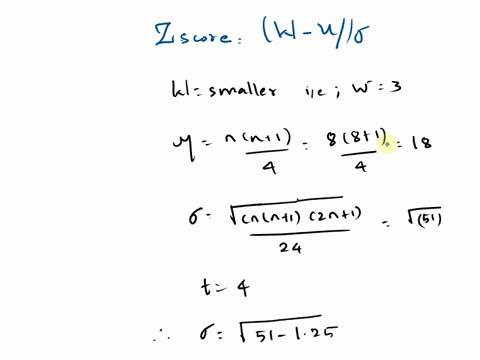 Z score: (W - μ)/σ
W = smaller i,e ; W = 3
μ = n(n+1)/4 = 8(8+1)/4 = 18
σ = √(n(n+1)(2n+1)/24 = √(51)
t = 4
∴ σ = √51 - 1.25